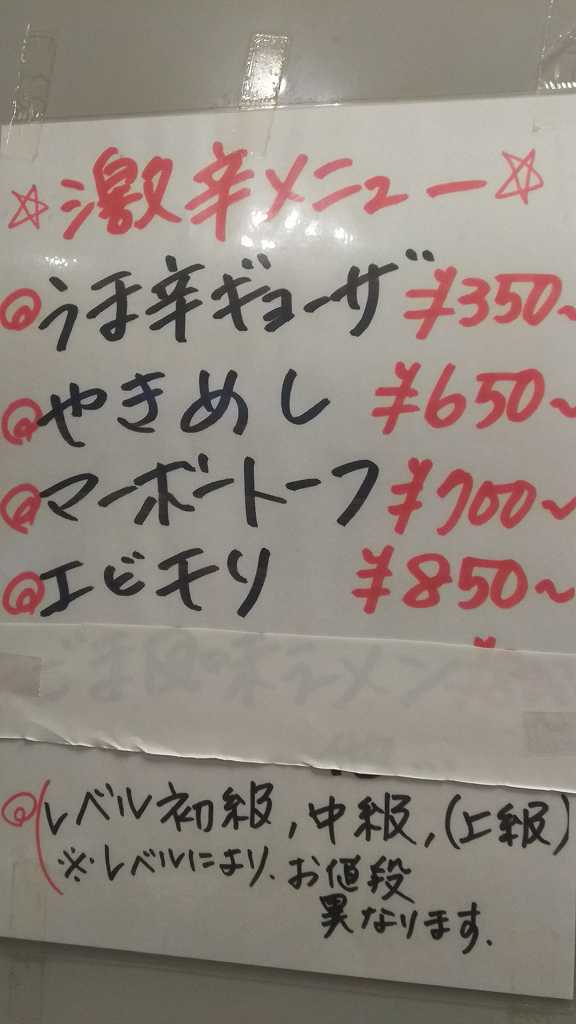 ☆激辛メニュー☆
うま辛ギョーザ ¥350~
やきめし ¥650~
マーボートーフ ¥700~
エビチリ ¥850~
ごま風味ラーメン
(レベル初級, 中級, (上級)
※レベルにより、お値段
異なります.